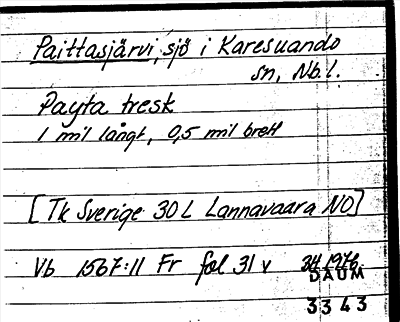 Paittasjärvi, sjö i Karesuando
sn, Nb.l.
Payta tresk
1 mil långt, 0,5 mil brett
[Tk Sverige 30 L Lannavaara NO]
Vb 1567:11 Fr fol 31 v 1976
DAUM
3343